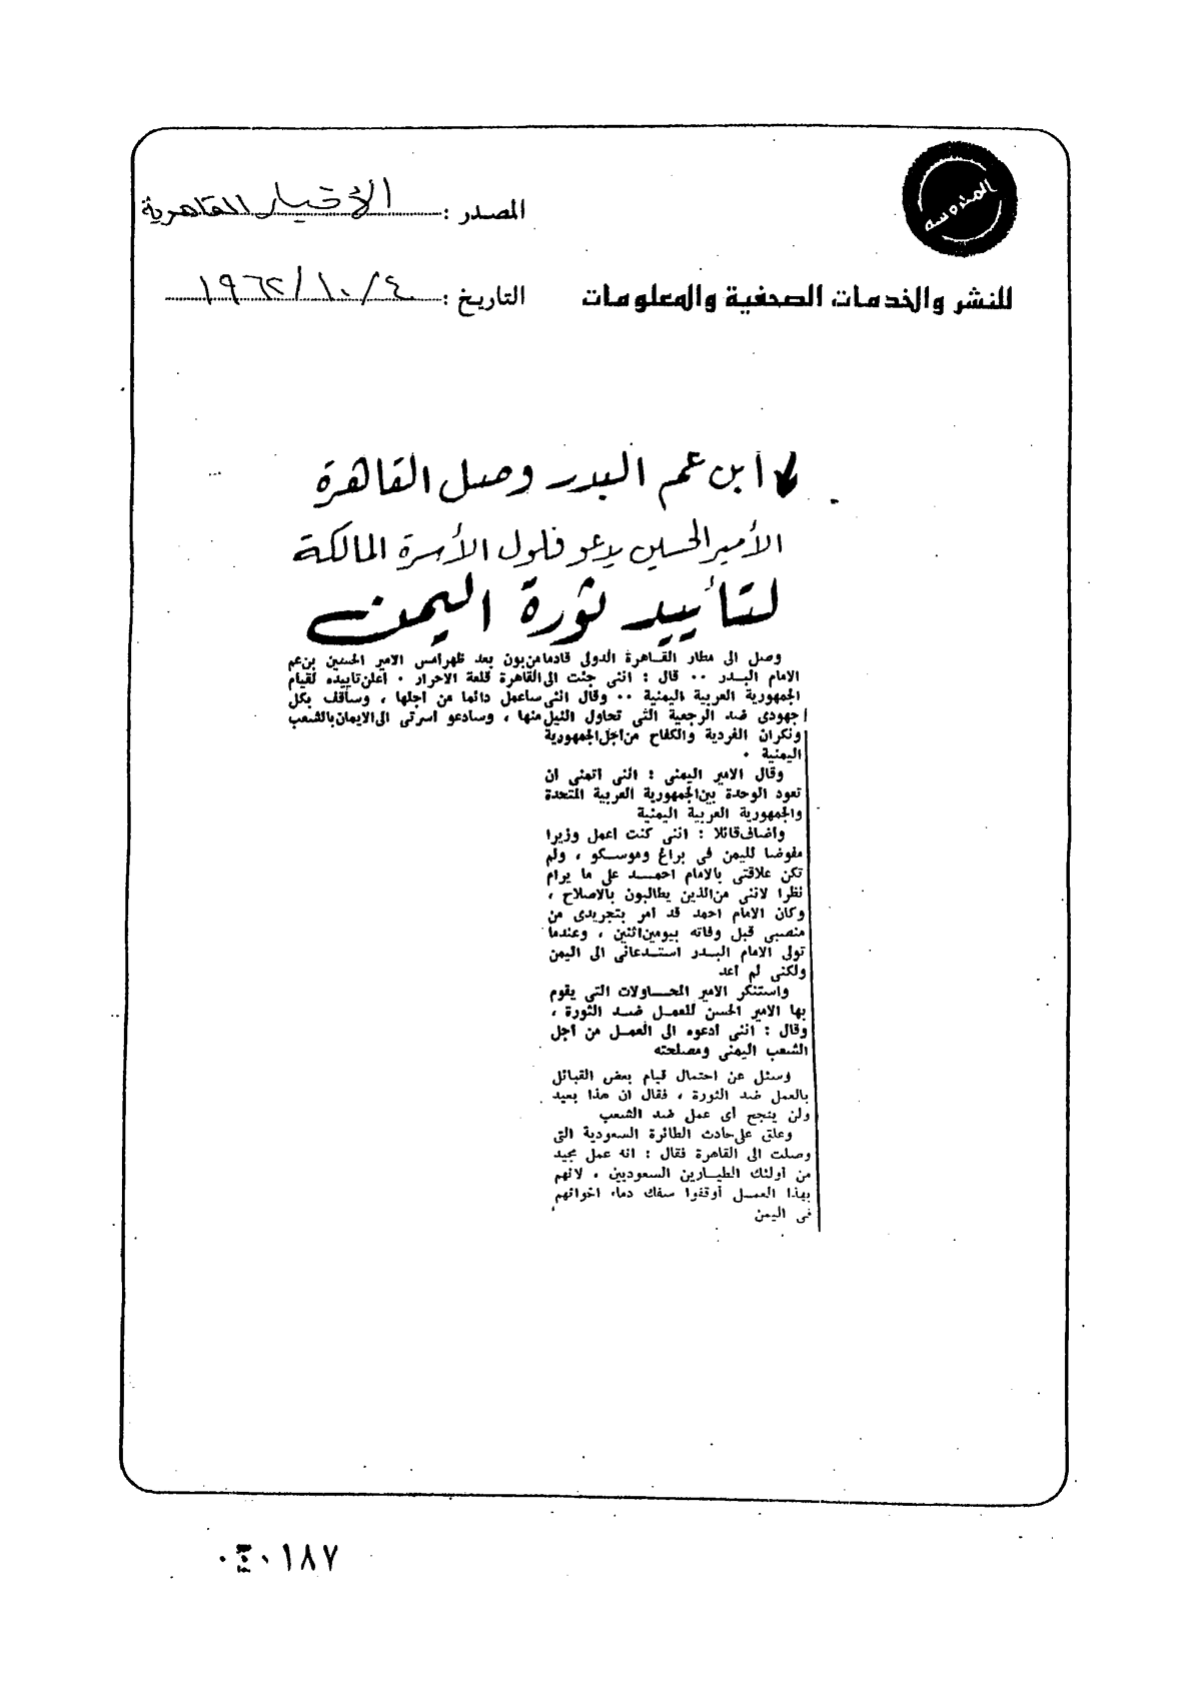 المحروسة
المصدر : الأخبار القاهرية
للنشر والخدمات الصحفية والمعلومات
التاريخ : ٤/١٠/١٩٦٢
ابن عم البدر وصل القاهرة
الأمير الحسين يدعو فلول الأسرة المالكة
لتأييد ثورة اليمن
وصل الى مطار القاهرة الدولى قادما من بون بعد ظهر امس الامير الحسين بن عم
الامام البدر ٠٠ قال : اننى جئت الى القاهرة قلعة الاحرار ٠ اعلن تاييده لقيام
الجمهورية العربية اليمنية ٠٠ وقال اننى ساعمل دائما من اجلها ، وساقف بكل
جهودى ضد الرجعية التى تحاول النيل منها ، وسادعو اسرتى الى الايمان بالشعب
ونكران الفردية والكفاح من اجل الجمهورية
اليمنية ٠
وقال الامير اليمنى : اننى اتمنى ان
تعود الوحدة بين الجمهورية العربية المتحدة
والجمهورية العربية اليمنية
واضاف قائلا : اننى كنت اعمل وزيرا
مفوضا لليمن فى براغ وموسكو ، ولم
تكن علاقتى بالامام احمد على ما يرام
نظرا لاننى من الذين يطالبون بالاصلاح ،
وكان الامام احمد قد امر بتجريدى من
منصبى قبل وفاته بيومين اثنين ، وعندما
تولى الامام البدر استدعانى الى اليمن
ولكنى لم اعد
واستنكر الامير المحاولات التى يقوم
بها الامير الحسن للعمل ضد الثورة ،
وقال : اننى ادعوه الى العمل من اجل
الشعب اليمنى ومصلحته
وسئل عن احتمال قيام بعض القبائل
بالعمل ضد الثورة ، فقال ان هذا بعيد
ولن ينجح أى عمل ضد الشعب
وعلق على حادث الطائرة السعودية التى
وصلت الى القاهرة فقال : انه عمل مجيد
من أولئك الطيارين السعوديين ، لانهم
بهذا العمل أوقفوا سفك دماء اخوانهم
فى اليمن
٠١٨٧